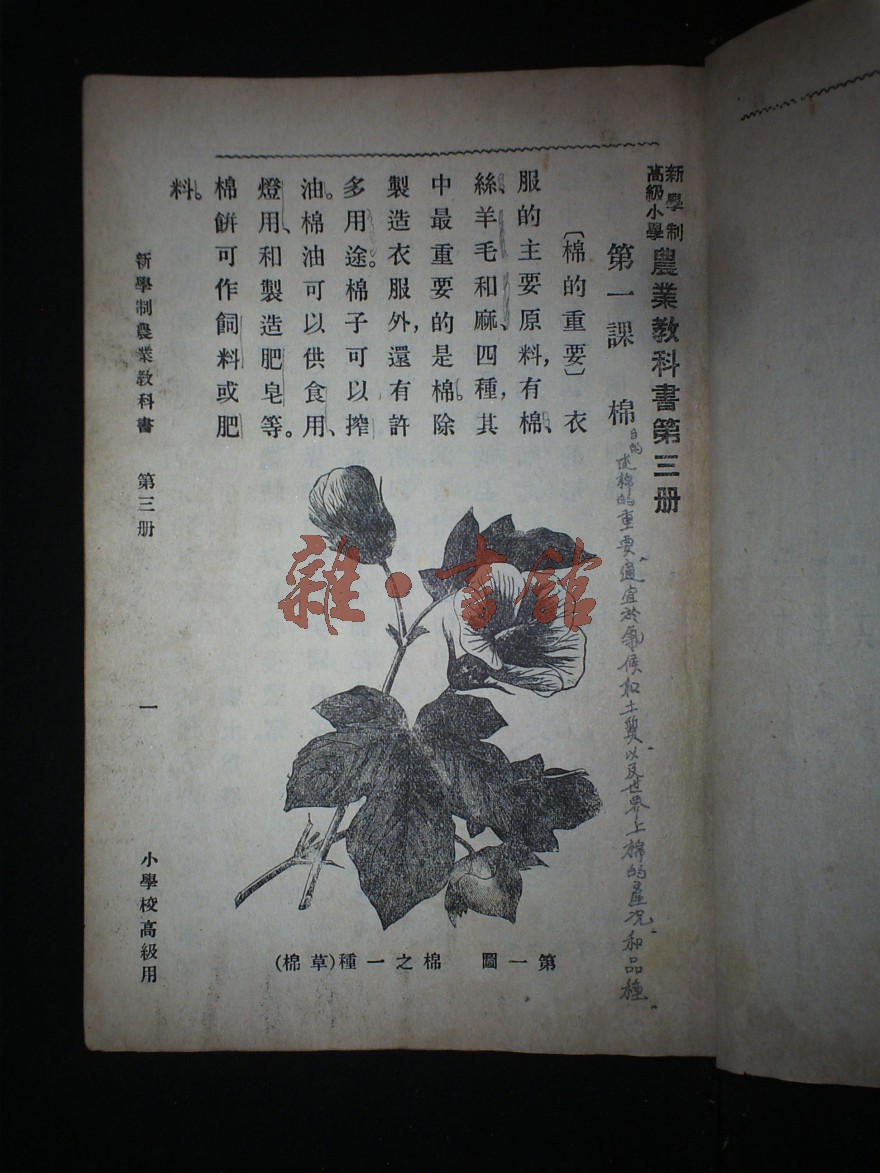 新學制
高級小學
農業教科書第三册
第一課 棉
目的 述棉的重要、適宜於氣候和土質、以及世界上棉的產況、和品種
〔棉的重要〕衣
服的主要原料,有棉、
絲、羊毛和麻、四種,其
中最重要的是棉。除
製造衣服外,還有許
多用途。棉子可以搾
油。棉油可以供食用、
燈用、和製造肥皂等。
棉餅可作飼料或肥
料。
第一圖 棉之一種(草棉)
新學制農業教科書 第三册
一
小學校高級用
雜·書館